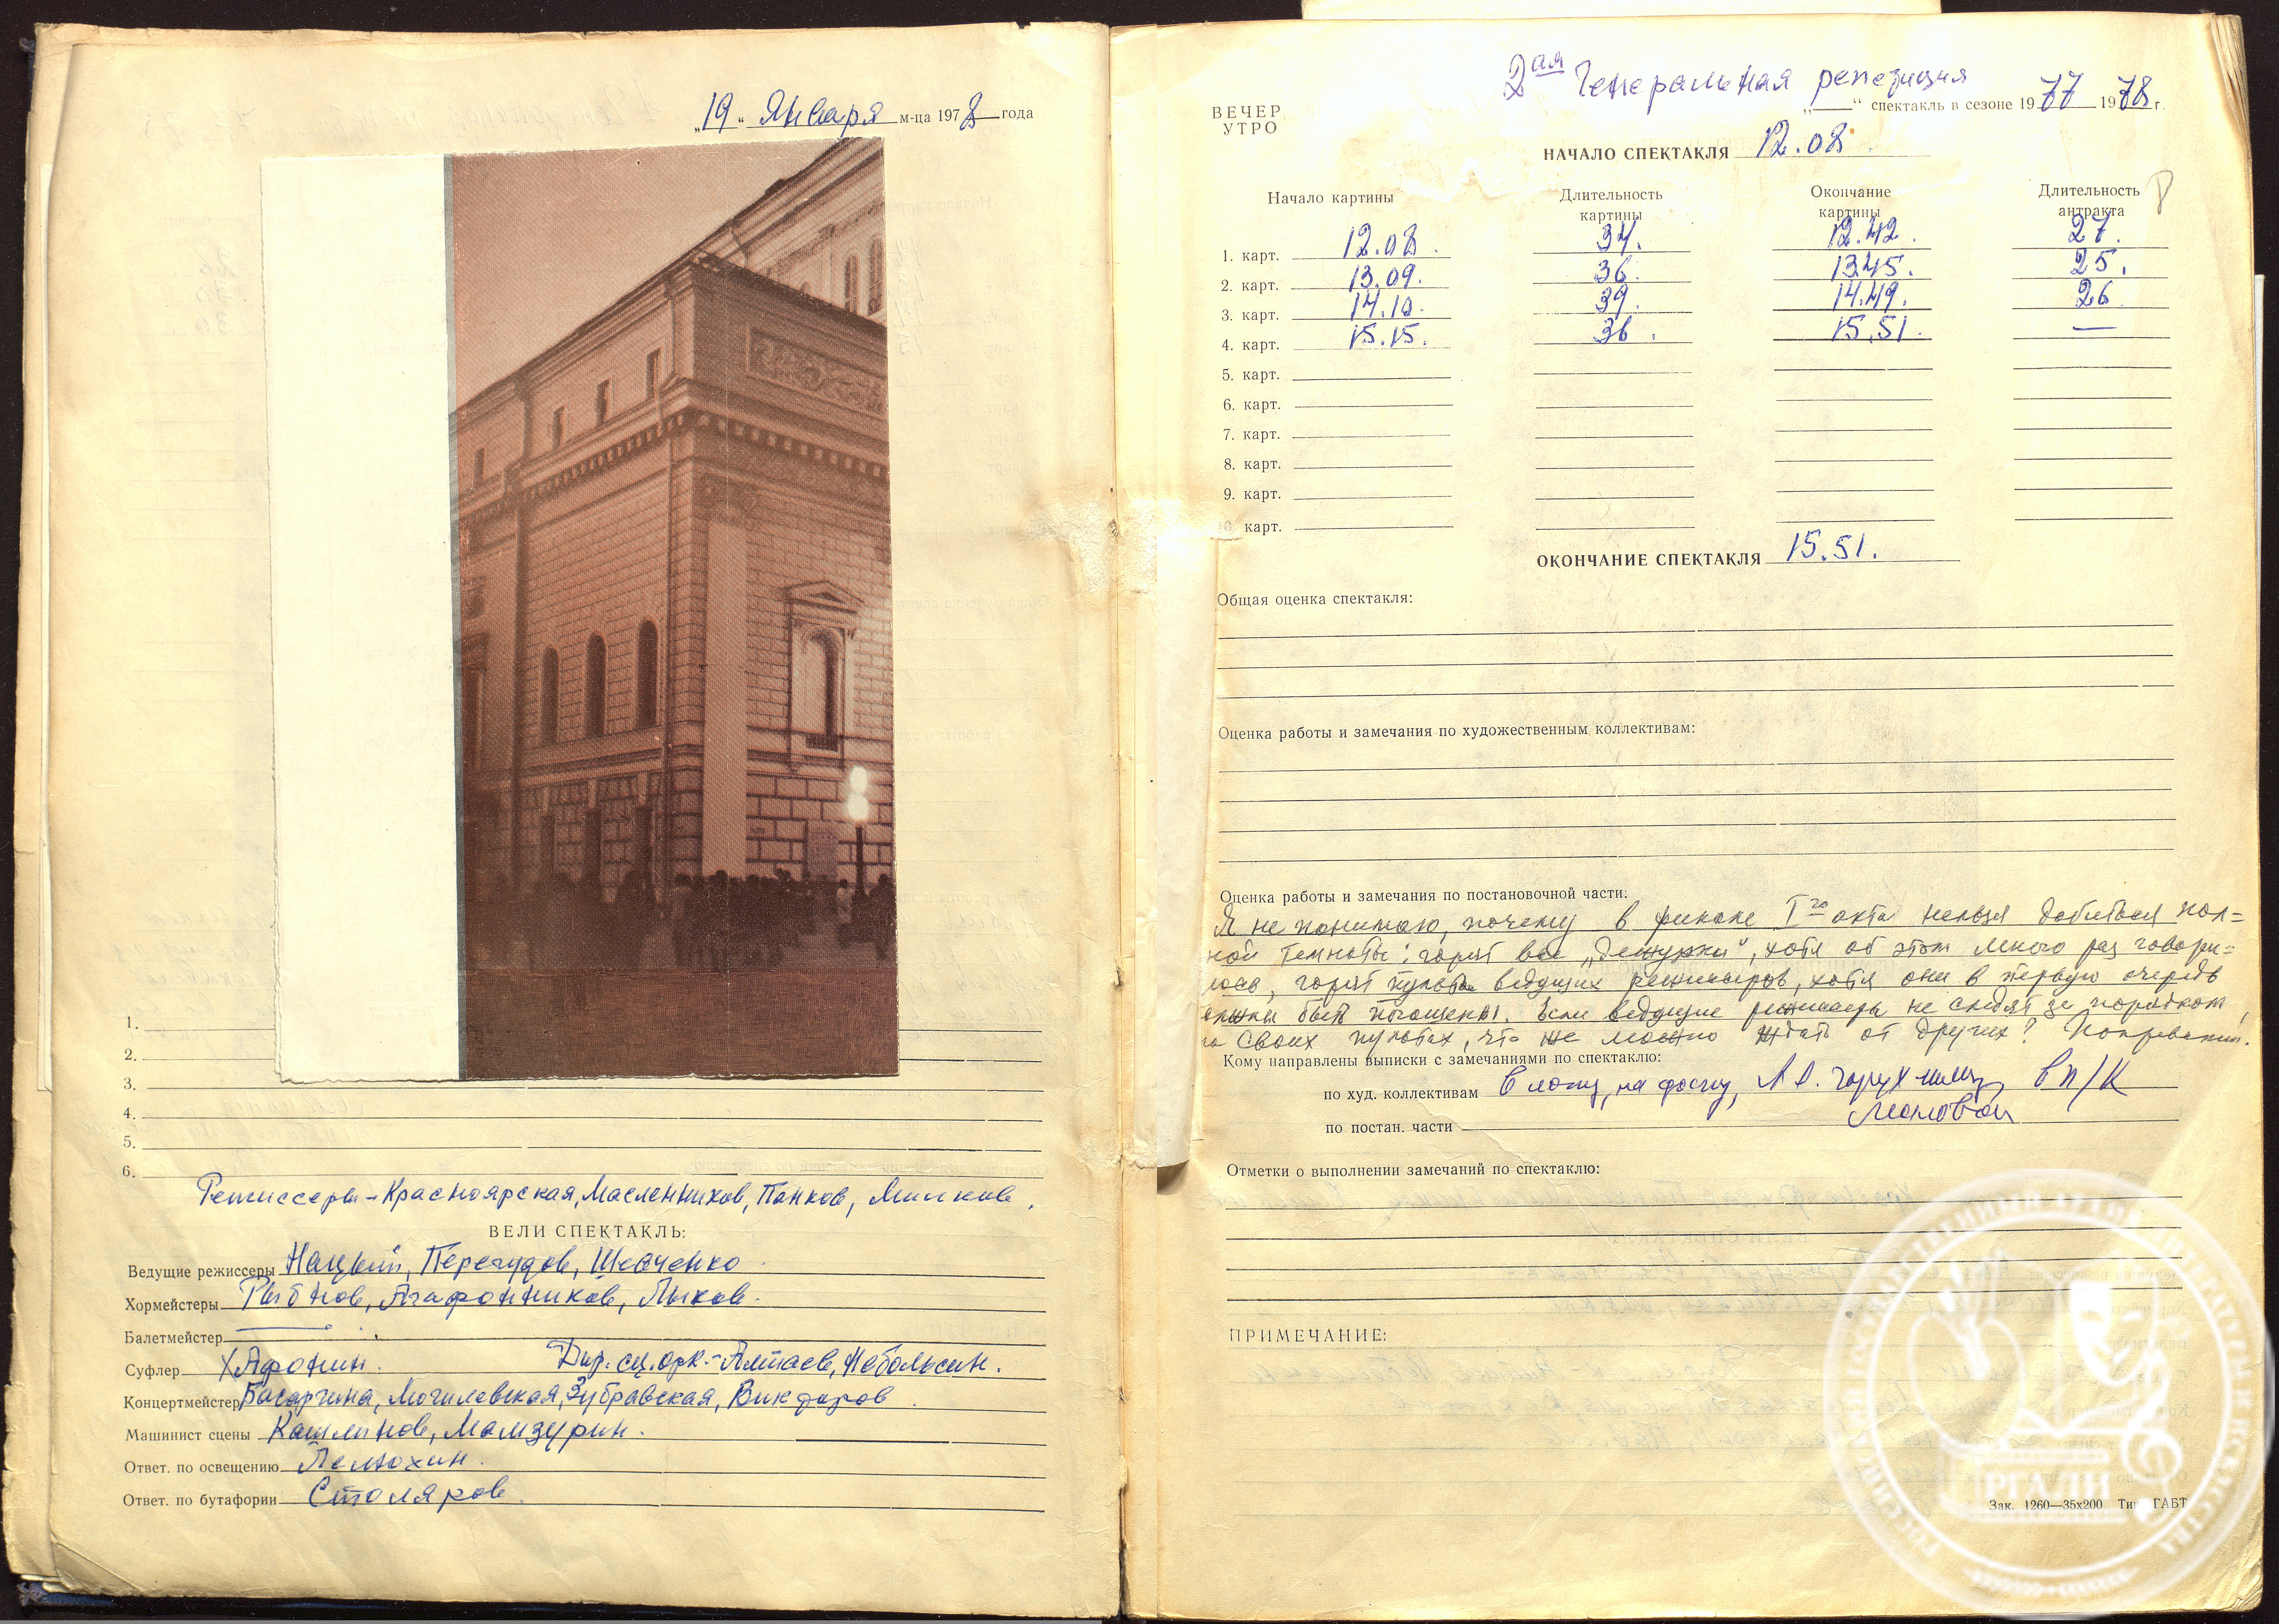 „19“ Января м-ца 1978 года
1.
2.
3.
4.
5.
6.
Режиссеры - Красноярская, Масленников, Панков,
ВЕЛИ СПЕКТАКЛЬ:
Ведущие режиссеры Нацкий, Перегудов, Шевченко
Хормейстеры Рыбнов, Агафонников, Лыков.
Балетмейстер —
Суфлер Афонин. Дир. сц. орк. - Алтаев, Небольсин.
Концертмейстер Басаргина, Могилевская, Зубравская, Викторов
Машинист сцены Кашлинов, Мамзурин.
Ответ. по освещению Пелюхин.
Ответ. по бутафории Столяров.
2ая Генеральная репетиция
ВЕЧЕР
УТРО
„ “ спектакль в сезоне 1977 1978 г.
НАЧАЛО СПЕКТАКЛЯ 12.08
Начало картины Длительность картины Окончание картины Длительность антракта
1. карт. 12.08. 34. 12.42. 27.
2. карт. 13.09. 36. 13.45. 25.
3. карт. 14.10. 39. 14.49. 26
4. карт. 15.15. 36. 15.51. —
5. карт.
6. карт.
7. карт.
8. карт.
9. карт.
карт.
ОКОНЧАНИЕ СПЕКТАКЛЯ 15.51.
Общая оценка спектакля:
Оценка работы и замечания по художественным коллективам:
Оценка работы и замечания по постановочной части:
Я не понимаю, почему в финале Iго акта нельзя добиться пол=
ной темноты: горят все „дежурки“, хотя об этом много раз говори=
лось, горят пульты ведущих режиссеров, хотя они в первую очередь
должны быть погашены. Если ведущие режиссеры не следят за порядком
на своих пультах, что же можно ждать от других? Покровский.
Кому направлены выписки с замечаниями по спектаклю:
по худ. коллективам в ложу, на доску, в п/к
по постан. части
Отметки о выполнении замечаний по спектаклю:
ПРИМЕЧАНИЕ:
Зак. 1260—35х200 Тип. ГАБТ
РГАЛИ